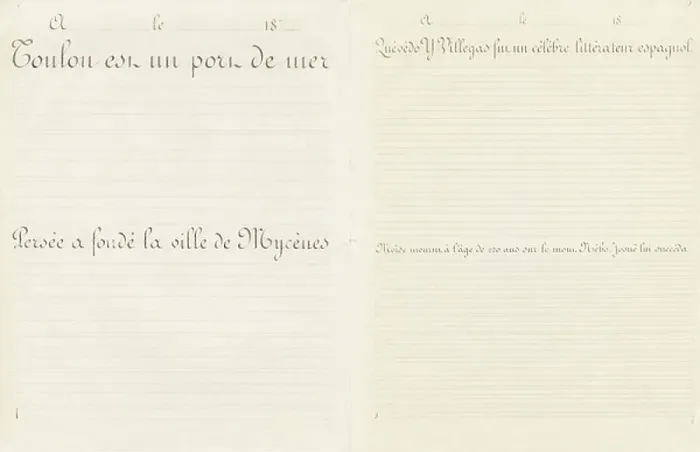 A le 18
Toulon est un port de mer
Persée a fondé la ville de Mycènes
A le 18
Quévédo Y Villegas fut un célèbre littérateur espagnol.
Moïse mourut à l'âge de 120 ans sur le mont Nébo, Josué lui succéda